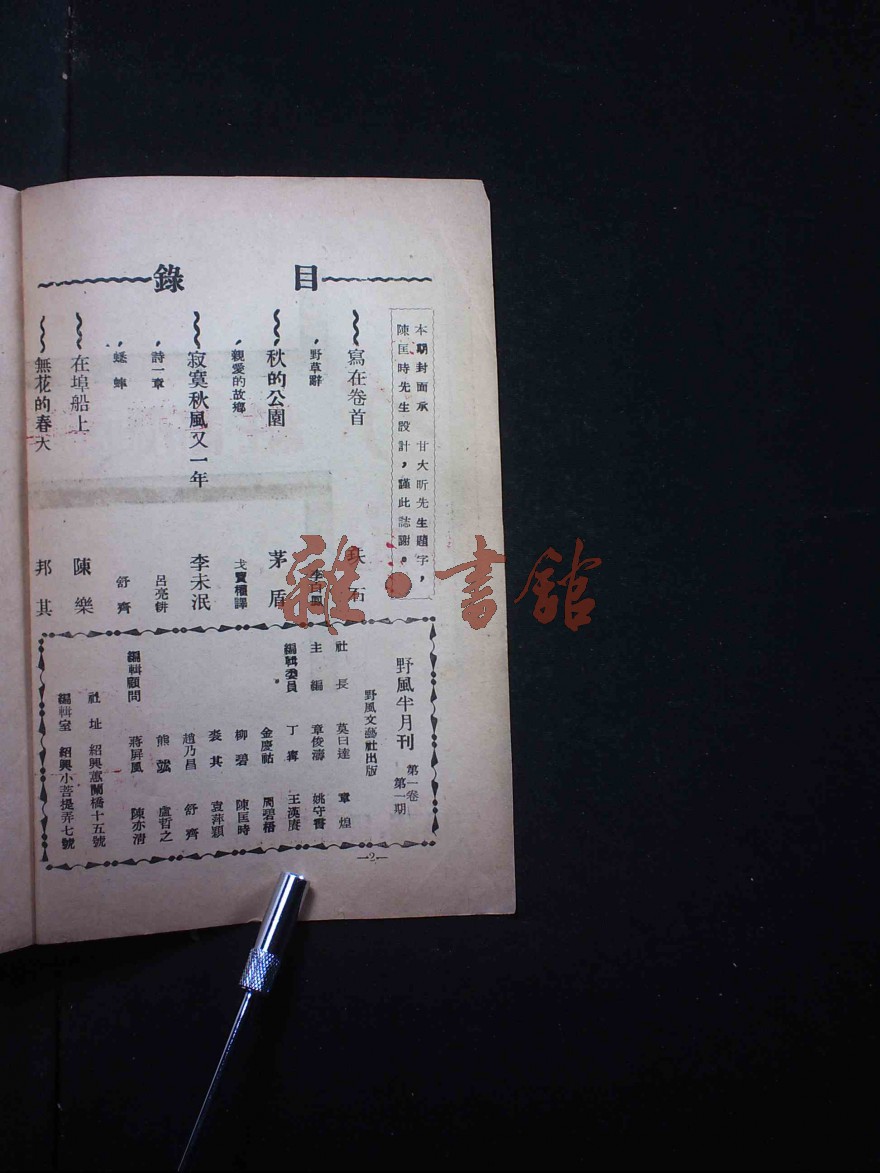 目錄
本期封面承 甘大昕先生題字，
陳匡時先生設計，謹此誌謝。
寫在卷首 石
野草辭 李白鳳
秋的公園 茅盾
親愛的故鄉 戈寶權譯
寂寞秋風又一年 李未泯
詩一章 呂亮耕
蟋蟀 舒齊
在埠船上 陳樂
無花的春天 邦其
野風半月刊 第一卷 第一期
野風文藝社出版
社長 莫曰達 章煌
主編 章俊濤 姚守書
編輯委員 丁寗 王漢賡
金慶祜 周碧梧
柳碧 陳匡時
裘其 袁萍穎
趙乃昌 舒齊
熊 盧哲之
編輯顧問 蔣屏風 陳亦清
社址 紹興蕙蘭橋十五號
編輯室 紹興小菩提弄七號
—2—
雜·書館